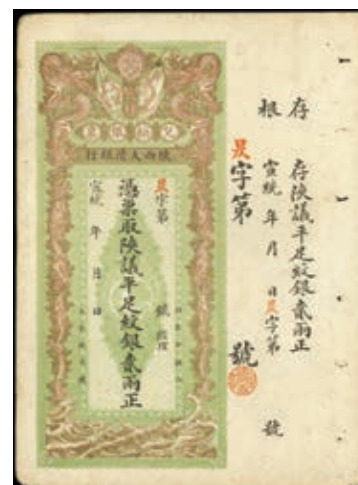 存根
存陝議平足紋銀貳兩正
宣統 年 月 日 字第 號
字第 號
銀票
陝西大清銀行
字第 號 經理
憑票取陝議平足紋銀貳兩正
宣統 年 月 日